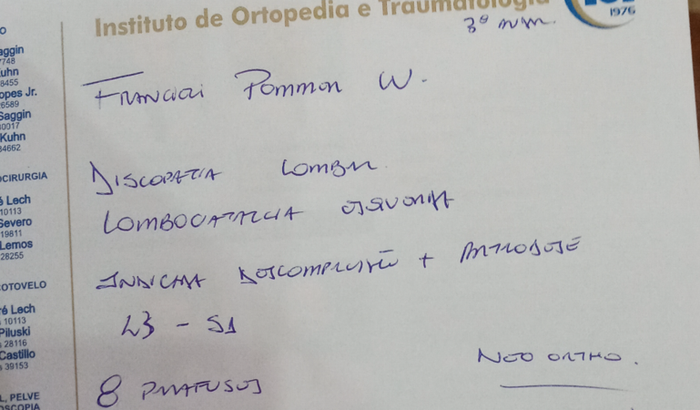 Instituto de Ortopedia e Traumatologia
1976
3º
O
aggin
7748
Kuhn
8455
opes Jr.
26589
Saggin
30017
Kuhn
34662
OCIRURGIA
é Lech
10113
Severo
19811
Lemos
28255
OTOVELO
ré Lech
s 10113
Piluski
s 28116
Castillo
s 39153
L, PELVE
OSCOPIA
Pommon W.
Discopatia Lombar
Lombociatalgia
Indica Descompressão + Artrodese
L3 - S1
8 Parafusos
Neo Ortho.